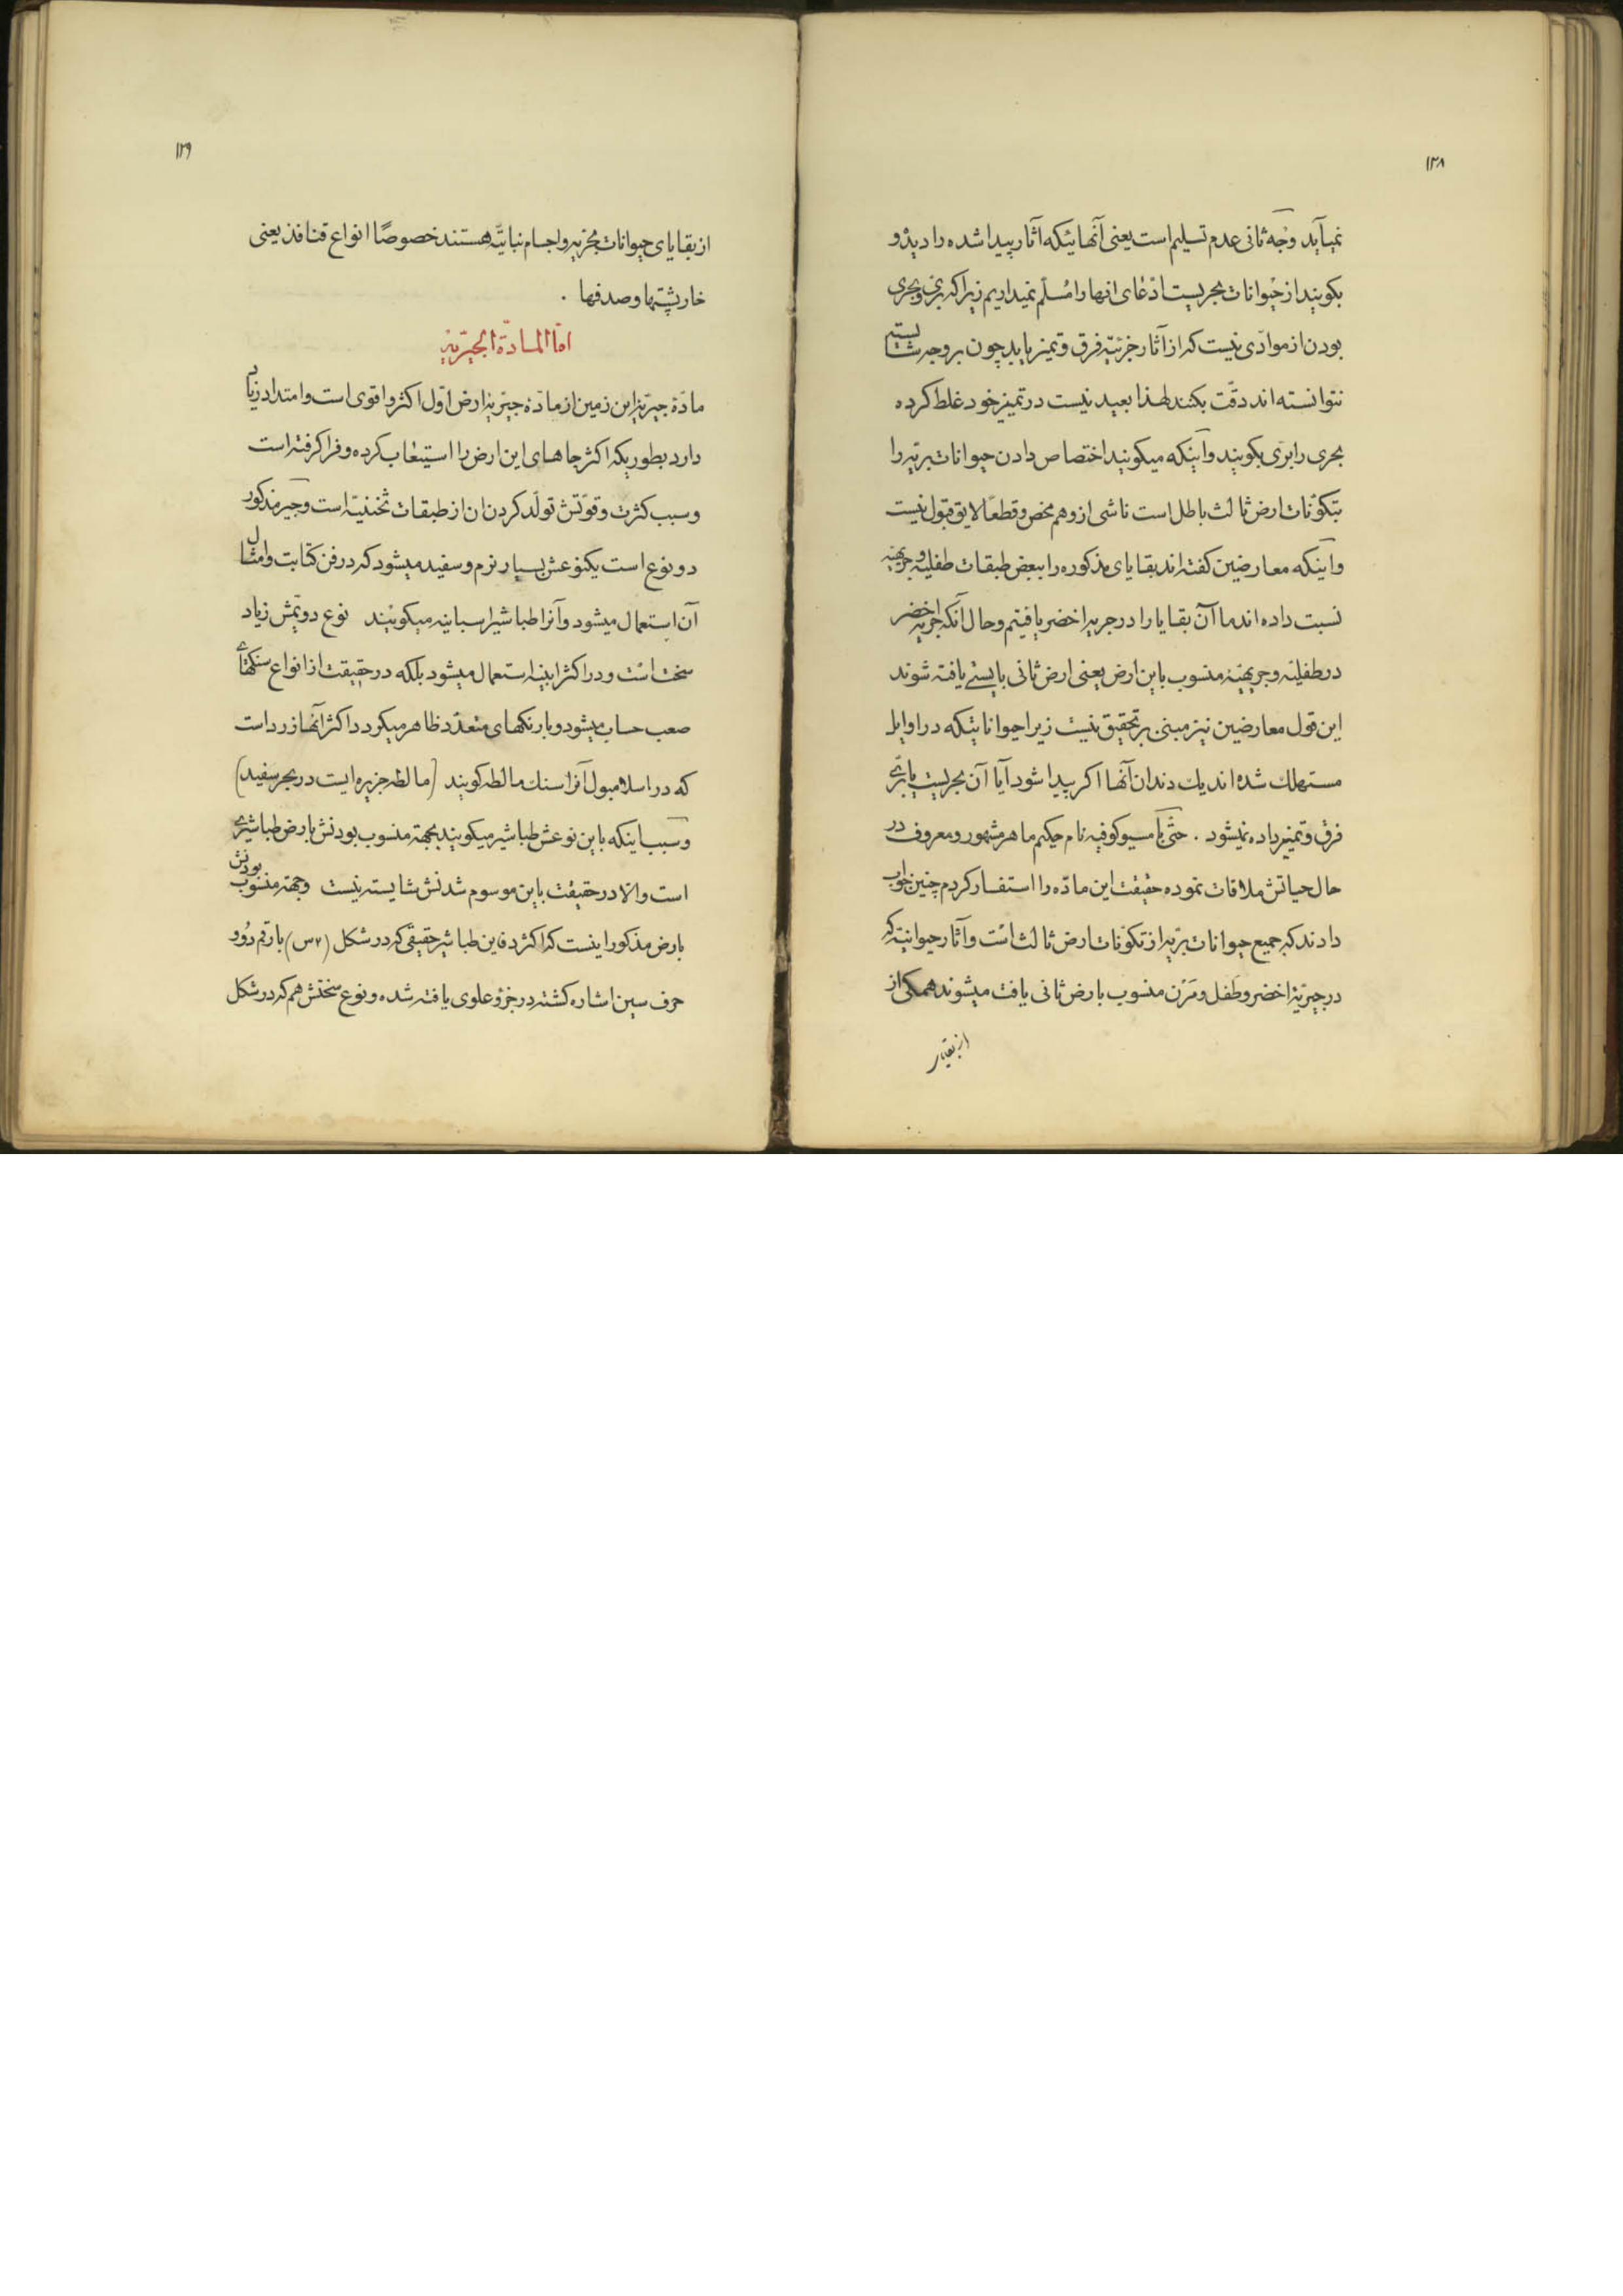 ۱۲۸
نمیآید وجه ثانی عدم تسلیم است یعنی آنهائیکه آثار پیدا شده را دیده و
بکویند از حیوانات بحریست ادّعای انها را مسلّم نمیداریم زیرا که برّی و بحری
بودن از موادّی نیست که از آثار جزئیّه فرق و تمیز یابد چون بر وجه شایسته
نتوانسته اند دقّت بکنند لهذا بعید نیست در تمیز خود غلط کرده
بحری را برّی بکویند و اینکه میکویند اختصاص دادن حیوانات برّیه را
بتکوّنات ارض ثالث باطل است ناشی از وهم محض و قطعًا لایق قبول نیست
و اینکه معارضین کفته اند بقایای مذکوره را ببعض طبقات طفلیه و جریهنیه
نسبت داده اند ما آن بقایا را در جریه اخضر یافتیم و حال آنکه جریه اخضر
در طفلیّه و جریهنیّه منسوب باین ارض یعنی ارض ثانی بایستی یافته شوند
این قول معارضین نیز مبنی بر تحقیق نیست زیرا حیواناتیکه در اوایل
مستهلك شده اند یك دندان آنها اکر پیدا شود آیا آن بحریست یا برّی
فرق و تمیز داده نمیشود . حتّی با مسیو کوفیه نام حکیم ماهر مشهور و معروف در
حال حیاتش ملاقات نموده حقیقت این مادّه را استفسار کردم چنین جواب
دادند که جمیع حیوانات برّیه از تکوّنات ارض ثالث است و آثار حیوانیّه که
در جیریّهٔ اخضر و طفل و مَرْن منسوب بارض ثانی یافت میشوند همکی از
از بقایای
۱۲۹
از بقایای حیوانات بحریه و اجسام نباتیّه هستند خصوصًا انواع قنافذ یعنی
خارپشتها و صدفها .
امّا المادّة الجیریّة
مادّهٔ جیریّهٔ این زمین از مادّهٔ جیریّهٔ ارض اوّل اکثر و اقوی است و امتداد زیاد
دارد بطوریکه اکثر جاهای این ارض را استیعاب کرده و فرا کرفته است
و سبب کثرت و قوّتش تولّد کردن ان از طبقات تحتیّه است و جیر مذکور
دو نوع است یکنوعش بسیار نرم و سفید میشود که در فن کتابت و امثال
آن استعمال میشود و آنرا طباشیر اسبانیه میکویند نوع دویّمش زیاد
سخت است و در اکثر ابنیه استعمال میشود بلکه در حقیقت از انواع سنکهای
صعب حساب میشود و بارنکهای متعدّد ظاهر میکردد اکثر آنها زرد است
که در اسلامبول آنرا سنك مالطه کویند (مالطه جزیره ایست در بحر سفید)
و سبب اینکه باین نوعش طباشیر میکویند بجهة منسوب بودنش بارض طباشیری
است و الّا در حقیقت باین موسوم شدنش شایسته نیست وجهة منسوب بودنش
بارض مذکور اینست که اکثر دفاین طباشیر حقیقی که در شکل (۲س) بارقم دُو و
حرف سین اشاره کشته در جزؤ علوی یافته شده و نوع سختش هم که در شکل